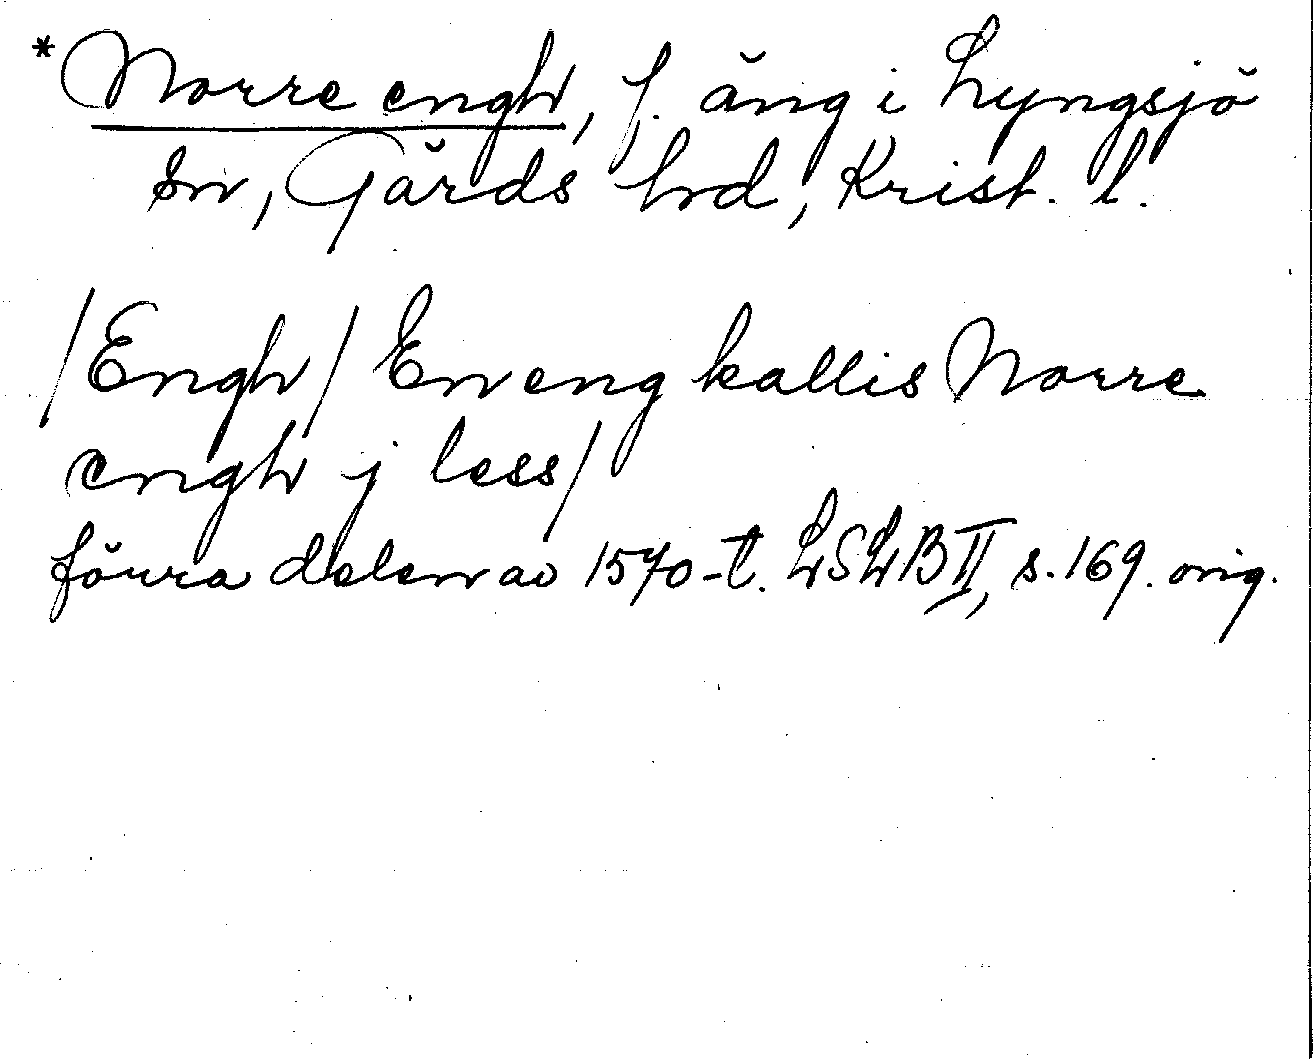 *Norre engh, f. äng i Lyngsjö
sn, Gärds hd, Krist. l.
/Engh/ En eng kallis Norre
engh j less/
förra delen av 1570-t. LSLB II, s. 169. orig.